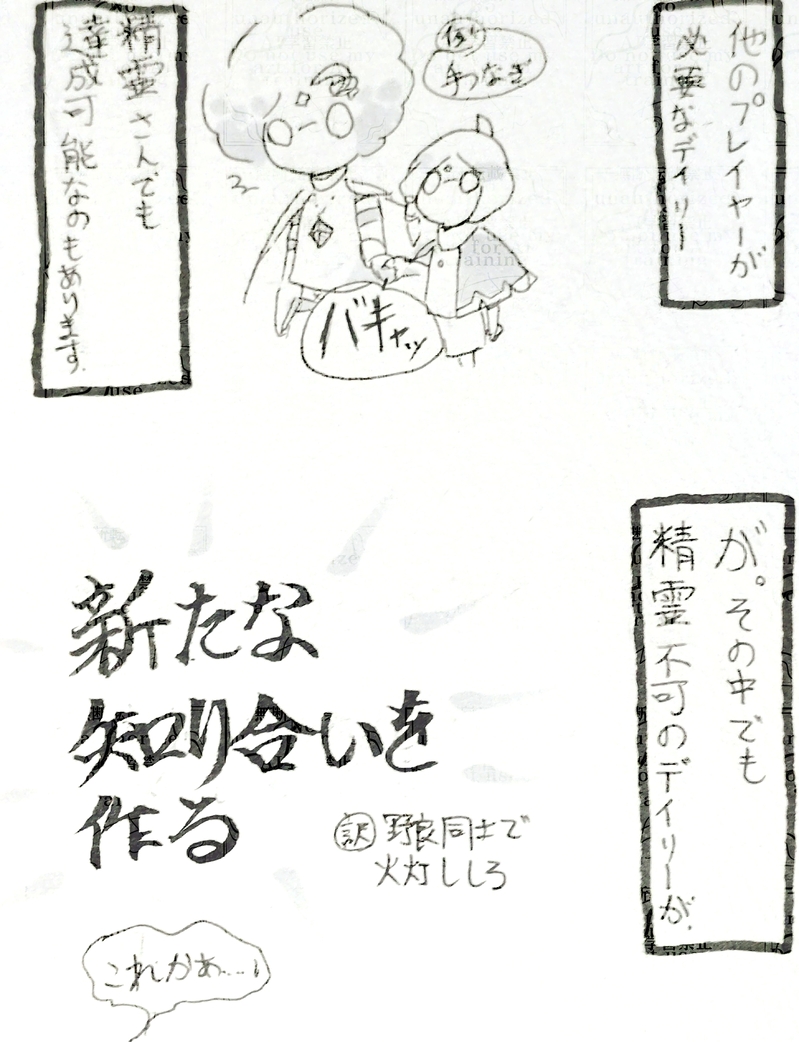 他のプレイヤーが
必要なデイリー
例
手つなぎ
バキャッ
精霊さんでも
達成可能なのもあります。
が。その中でも
精霊不可のデイリーが、
新たな
知り合いを
作る
訳 野良同士で
火灯ししろ
これかぁ…